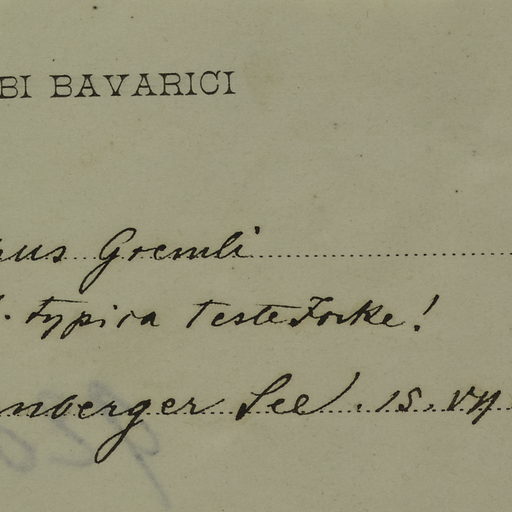 BI BAVARICI
us Gremli
typica teste Focke!
nberger See. 15. VII